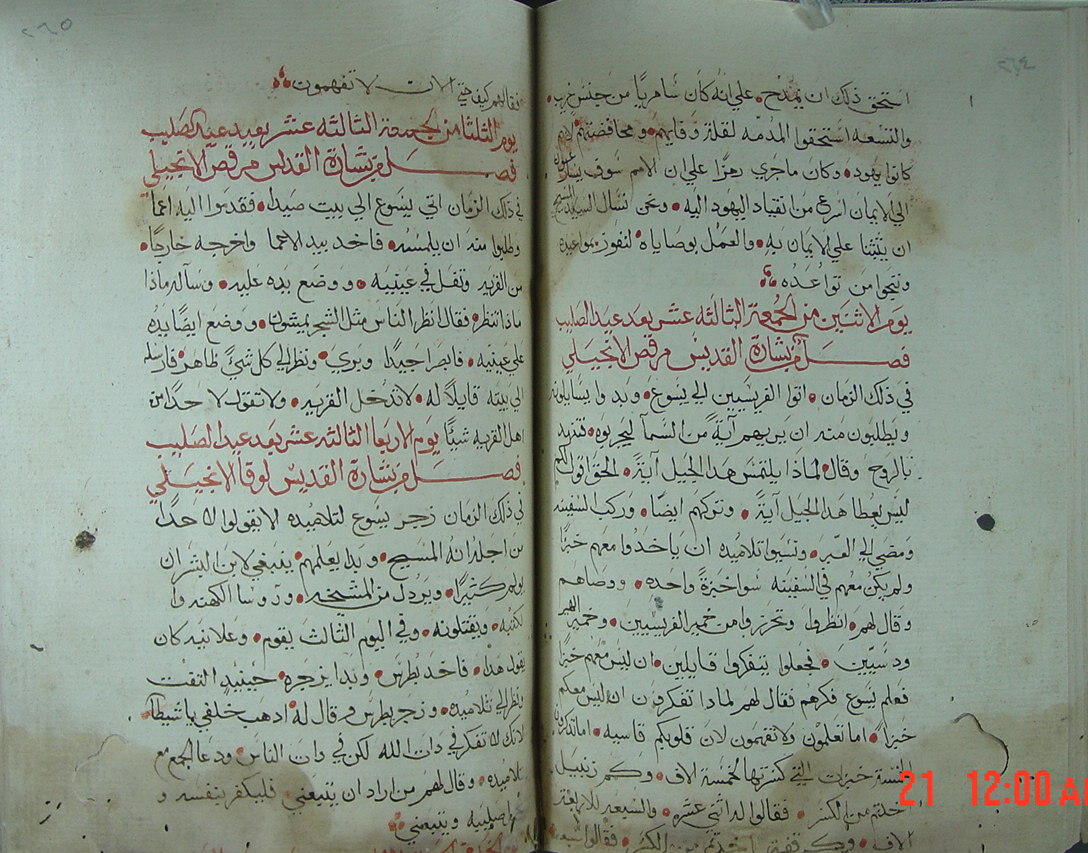 ٢٦٤
استحق ذلك ان يمدح علي انه كان سامريًا من جنس غريب
والتسعه استحقوا المذمه لقلة وفايهم ومحافضتهم لانهم
كانوا يهود وكان ماجري رمزًا علي ان الامم سوف
الي الايمان اسرع من انقياد اليهود اليه ونحن نسال السيد المسيح
ان يثبتنا علي الايمان به والعمل بوصاياه لنفوز بمواعيده
وننجوا من تواعده
يوم الاثنين من الجمعة الثالثه عشر بعد عيد الصليب
فصل من بشارة القديس مرقص الانجيلي
في ذلك الزمان اتوا الفريسيين الي يسوع وبدوا يسايلونه
ويطلبون منه ان يريهم آيةً من السمآ ليجربوه فتنهد
بالروح وقال لماذا يلتمس هذا الجيل آيةً الحق اقول لكم
ليس يعطا هذا الجيل آيةً وتركهم ايضًا وركب السفينه
ومضي الي العبر ونسيوا تلاميذه ان ياخدوا معهم خبزًا
ولم يكن معهم في السفينه سوا خبزةً واحده ووصاهم
وقال لهم انظروا وتحرزوا من خمير الفريسيين وخمير
ودسيين فجعلوا يتفكروا قايلين ان ليس معهم خبزًا
فعلم يسوع فكرهم فقال لهم لماذا تفكرون ان ليس معكم
خبزًا اما تعلمون ولا تفهمون لان قلوبكم قاسيه اما تذكرون
الخمسة خبزات التي كسرتها لخمسة الاف وكم زنبيل
اخدتم من الكسر فقالوا له اثني عشره والسبعه للاربعة
الاف وكم قفة اخدتم من الكسر فقالوا سبعه
٢٦٥
فقال لهم كيف حتي الان لا تفهمون
يوم الثلثا من الجمعة الثالثه عشر بعيد عيد الصليب
فصل من بشارة القديس مرقص الانجيلي
في ذلك الزمان اتي يسوع الي بيت صيدا فقدموا اليه اعما
وطلبوا منه ان يلمسه فاخد بيد الاعما واخرجه خارجًا
من القريه وتفل في عينيه ووضع يده عليه وساله ماذا
ماذا تنظر فقال انظر الناس مثل الشجر يمشون ووضع ايضًا يده
علي عينيه فابصر جيدًا وبري ونظر الي كل شيءً ظاهر فارسله
الي بيته قايلًا له لا تدخل القريه ولا تقول لاحدًا من
اهل القريه شيئًا يوم الاربعا الثالثه عشر بعد عيد الصليب
فصل من بشارة القديس لوقا الانجيلي
في ذلك الزمان زجر يسوع لتلاميذه لا يقولوا لاحدًا
من اجله انه المسيح وبدا يعلمهم ينبغي لابن البشر ان
يولم كثيرًا ويردل من المشيخه وروسا الكهنه وا
لكتبه ويقتلونه وفي اليوم الثالث يقوم وعلانيه كان
يقول هذا فاخد بطرس وبدا يزجره حينيد التفت
ونظر الي تلاميذه وزجر بطرس وقال له ادهب خلفي يا شيطان
لانك لا تفكر في ذات الله لكن في ذات الناس ودعا الجمع مع
تلاميذه وقال لهم من اراد ان يتبعني فليكفر بنفسه و
صليبه ويتبعني
21 12:00 A